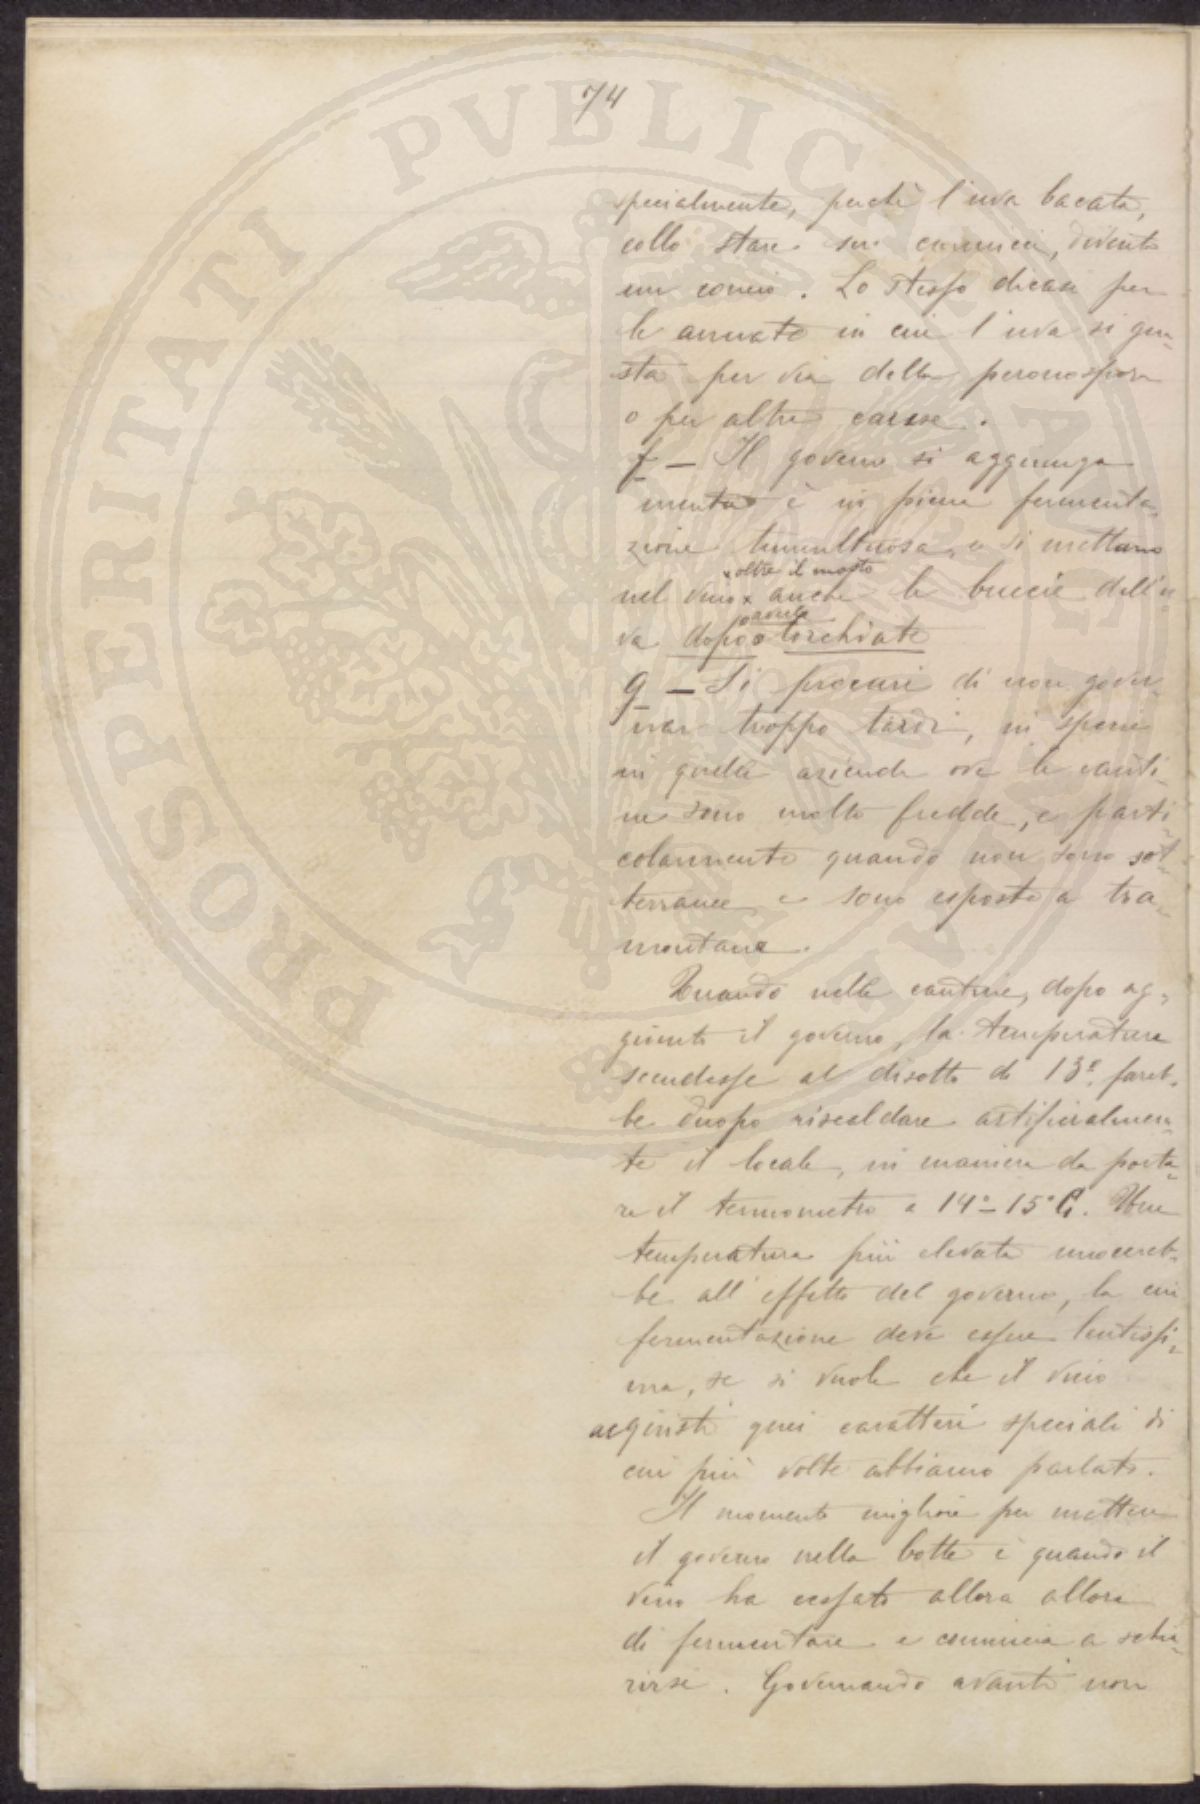 74
specialmente, perché l'uva bacata,
collo stare sui cannicci, diventa
un concio. Lo stesso dicasi per
le annate in cui l'uva si gua-
sta per via della peronospora
o per altre cause.
f — Il governo si aggiunga
mentre è in piena fermenta-
zione tumultuosa, e si mettano
x oltre il mosto
nel vino x anche le buccie dell'u-
va dopo averle torchiate
g — Si procuri di non gover-
nar troppo tardi, in specie
in quelle aziende ove le canti-
ne sono molto fredde, e parti-
colarmente quando non sono sot-
terranee e sono esposte a tra-
montana.
Quando nelle cantine, dopo ag-
giunto il governo, la temperatura
scendesse al disotto di 13°, fareb-
be duopo riscaldare artificialmen-
te il locale, in maniera da porta-
re il termometro a 14°-15° C. Una
temperatura più elevata nuocereb-
be all'effetto del governo, la cui
fermentazione deve essere lentissi-
ma, se si vuole che il vino
acquisti quei caratteri speciali di
cui più volte abbiamo parlato.
Il momento migliore per mettere
il governo nella botte è quando il
vino ha cessato allora allora
di fermentare e comincia a schia-
rirsi. Governando avanti non
PROSPERITATI PVBLICAE AVGENDAE